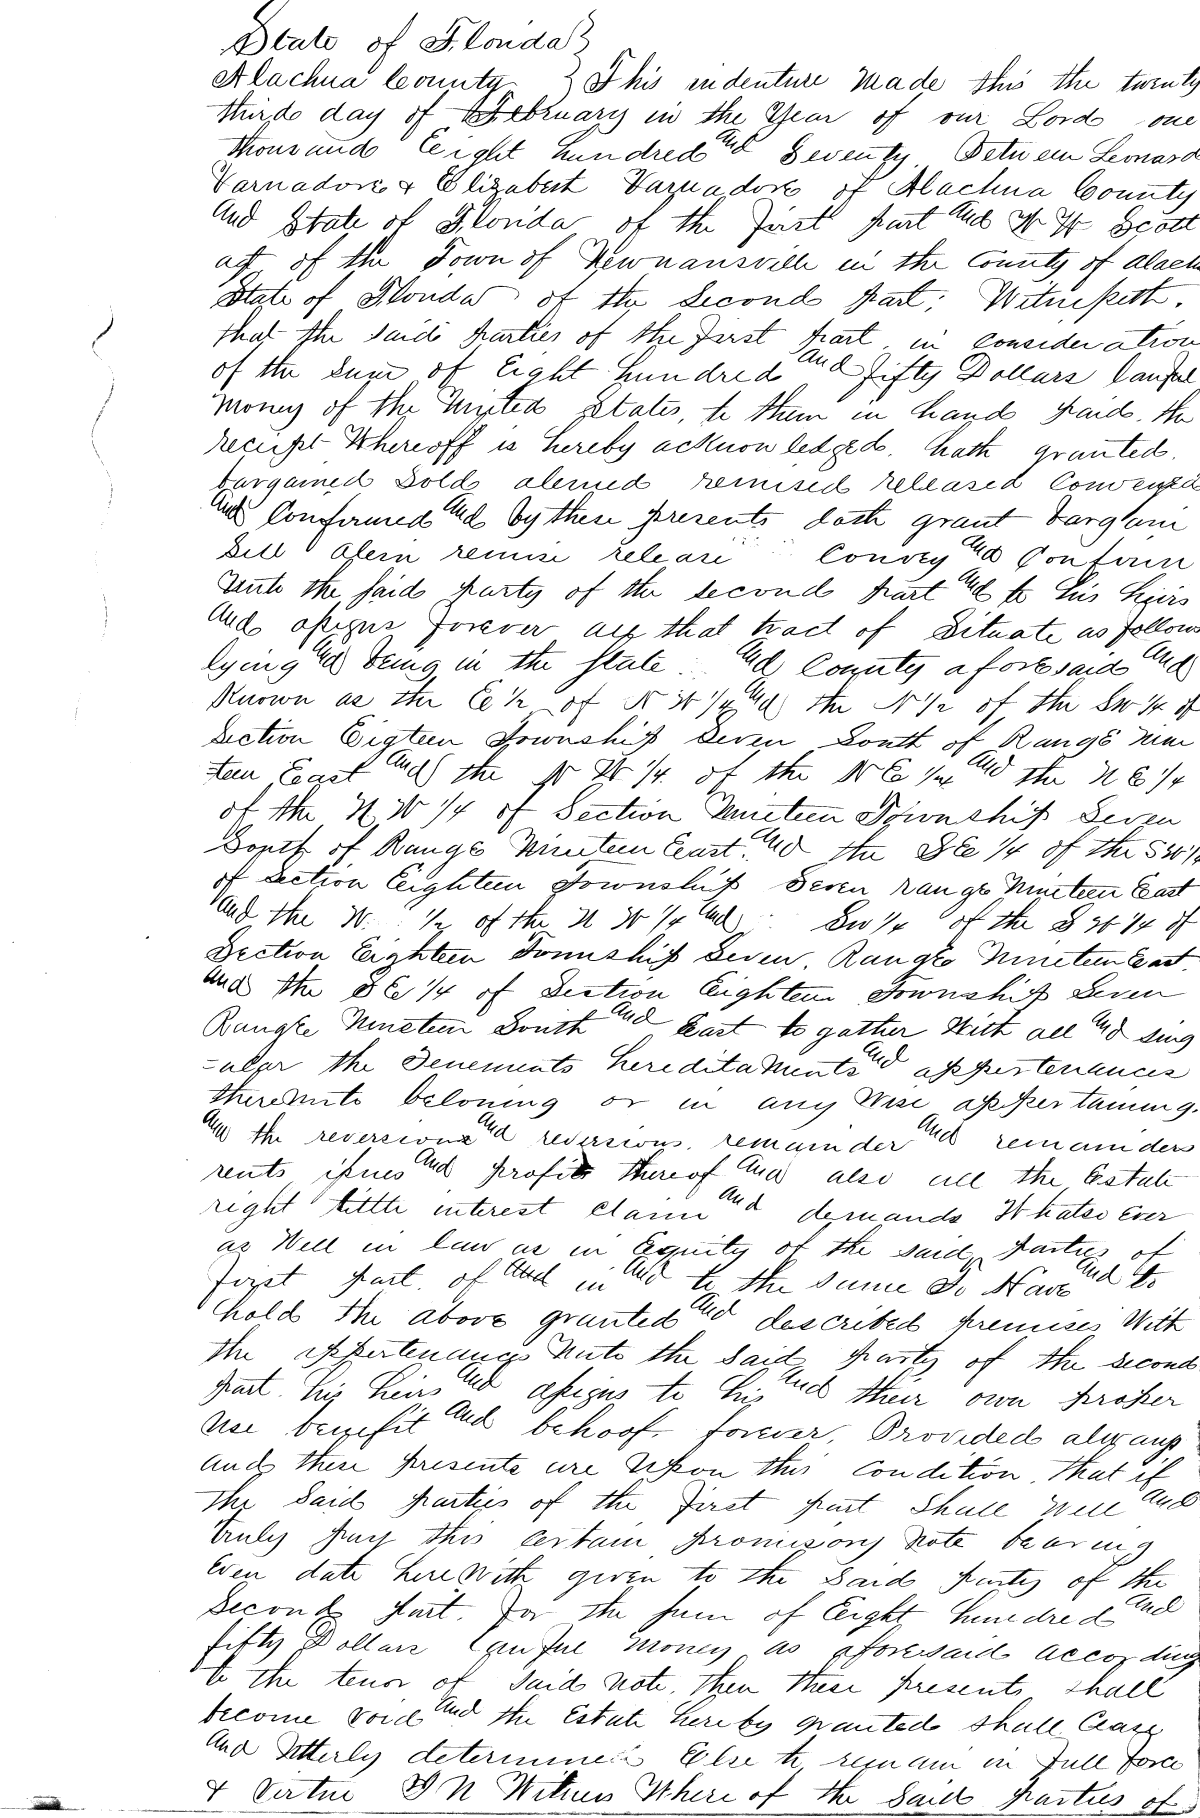 State of Florida }
Alachua County } This indenture made this the twenty
third day of February in the Year of our Lord one
thousand Eeight hundred and Seventy Between Leonard
Varnadore & Elizabeth Varnadore of Alachua County
And State of Florida of the First part And W W Scott
of the Town of Newnansville in the County of Alach
State of Florida of the Second part; Witnesseth.
that the said parties of the first part in consideration
of the sum of Eight hundred and fifty Dollars lawful
money of the United States, to them in hand paid. the
receipt Whereoff is hereby acknowledged. hath granted.
bargained Sold aliened remised released Conveyed
And Confirmed And by these presents doth grant bargain
Sell alein remise release Convey And Confirm
Unto the said party of the second part And to his heirs
And assigns forever all that tract of Situate as follows
lying And being in the State And County aforesaid And
Known as the Ee ½ of N W ¼ And the N ½ of the SW ¼ of
Section Eigteen Township Seven South of Range Nine
teen East And the N W ¼ of the N E ¼ And the N E ¼
of the N W ¼ of Section Nineteen Township Seven
South of Range Nineteen East. And the S E ¼ of the SW ¼
of Section Eighteen Township Seven range Nineteen East
And the W ½ of the N W ¼ And SW ¼ of the S W ¼ of
Section Eighteen Township Seven. Range Nineteen East.
And the S E ¼ of Section Eighteen Township Seven
Range Nineteen South And East to gather With all And sing
-ular the Tenements hereditaments And appertenances
thereunto beloning or in any Wise appertaining.
And the reversion And reversions. remainder And remainders
rents issues And profits thereof And also all the Estate
right tittle interest claim And demands Whatso Ever
as Well in law as in Equity of the said parties of
First part. of And in And to the same To Have And to
hold the above granted And described premises With
the appertenances Unto the said party of the second
part. his heirs And assigns to his And their own proper
use benefit And behoof forever. Provided always
and these presents are Upon this Condition. that if
the Said parties of the First part Shall Well And
truly pay this certain promisory Note bearing
Even date hereWith given to the said party of the
Second part. for the sum of Eeight hundred And
fifty Dollars lawful money as aforesaid according
to the tenor of said Note. then these presents shall
become Void And the Estate hereby granted shall Cease
And Utterly determine Else to remain in Full force
& Virtue I N Witness Where of the Said Parties of